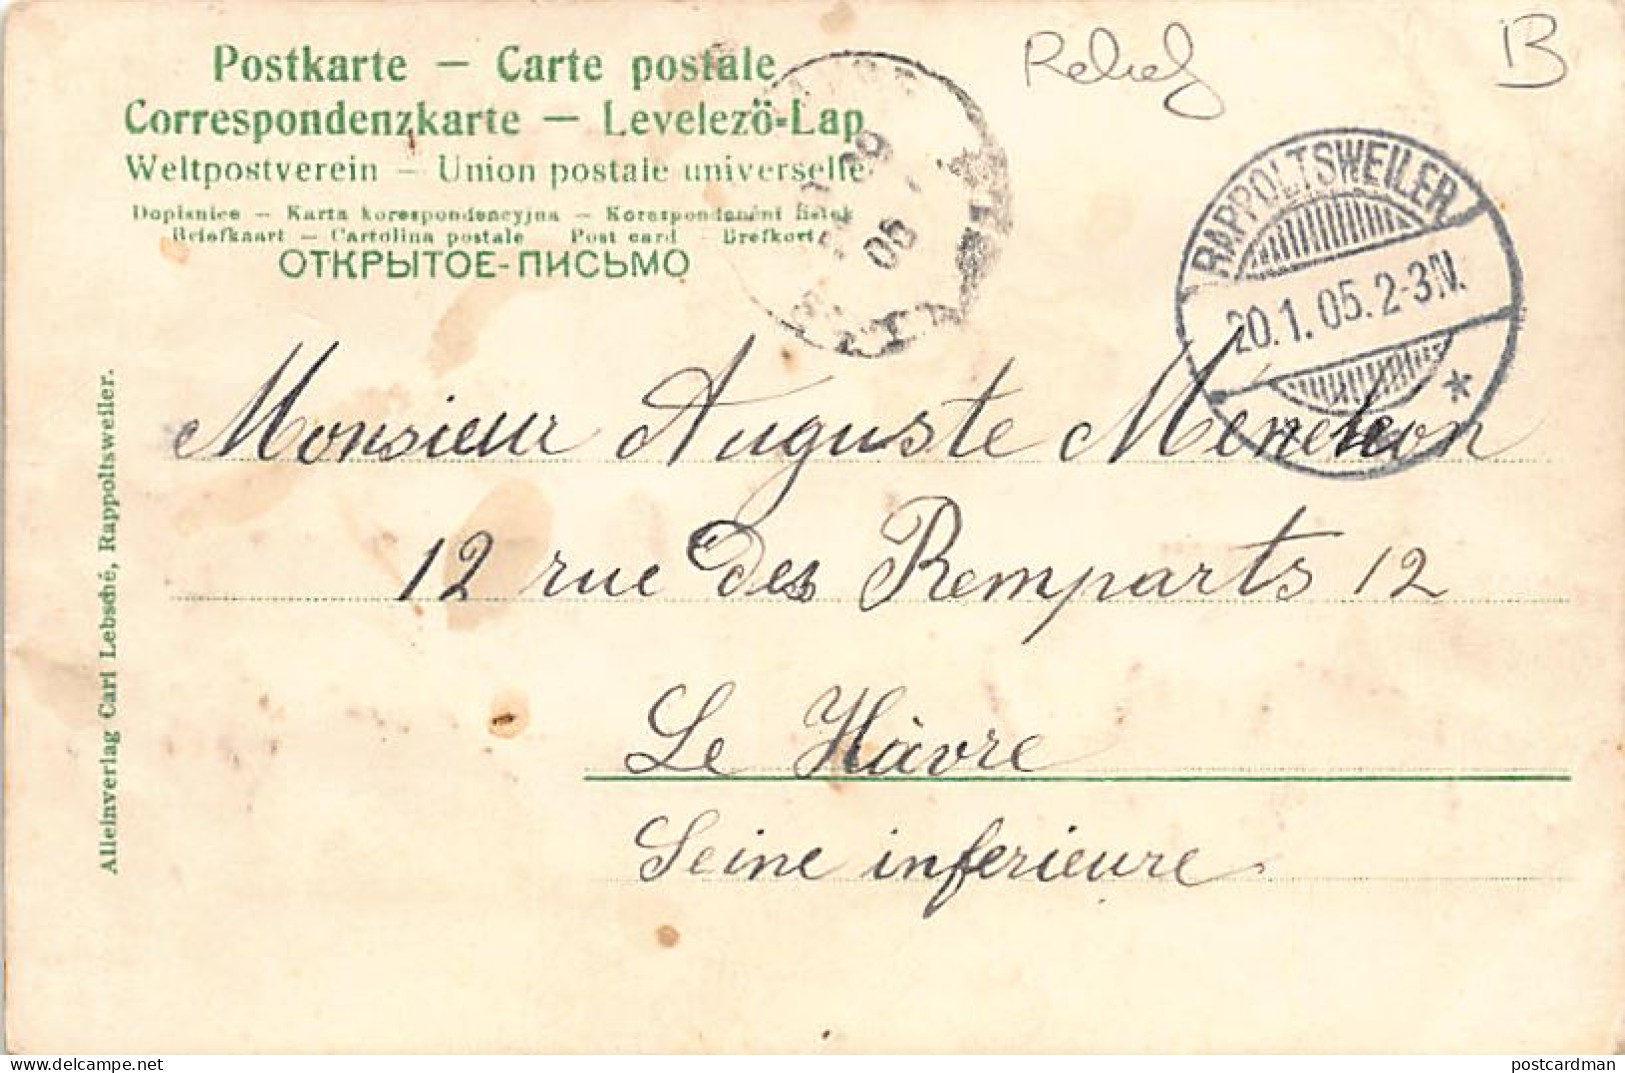 Postkarte — Carte postale
Correspondenzkarte — Levelező-Lap
Weltpostverein — Union postale universelle
Dopisnice — Karta korespondencyjna — Korespondenční lístek
Briefkaart — Cartolina postale Post card - Brefkort
ОТКРЫТОЕ-ПИСЬМО
Relief
B
RAPPOLTSWEILER
20.1.05.2-3N.
Monsieur Auguste Menchon
12 rue des Remparts 12
Le Hàvre
Seine inferieure
Alleinverlag Carl Lebsché, Rappoltsweiler.
delcampe.net
postcardman